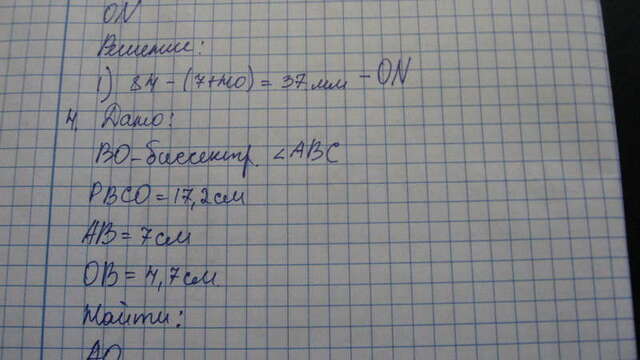 ON
Решение:
1) 84 - (7+40) = 37 мм - ON
4. Дано:
BO - биссектр. ∠ABC
PBCO = 17,2 см
AB = 7 см
OB = 4,7 см
Найти:
AO